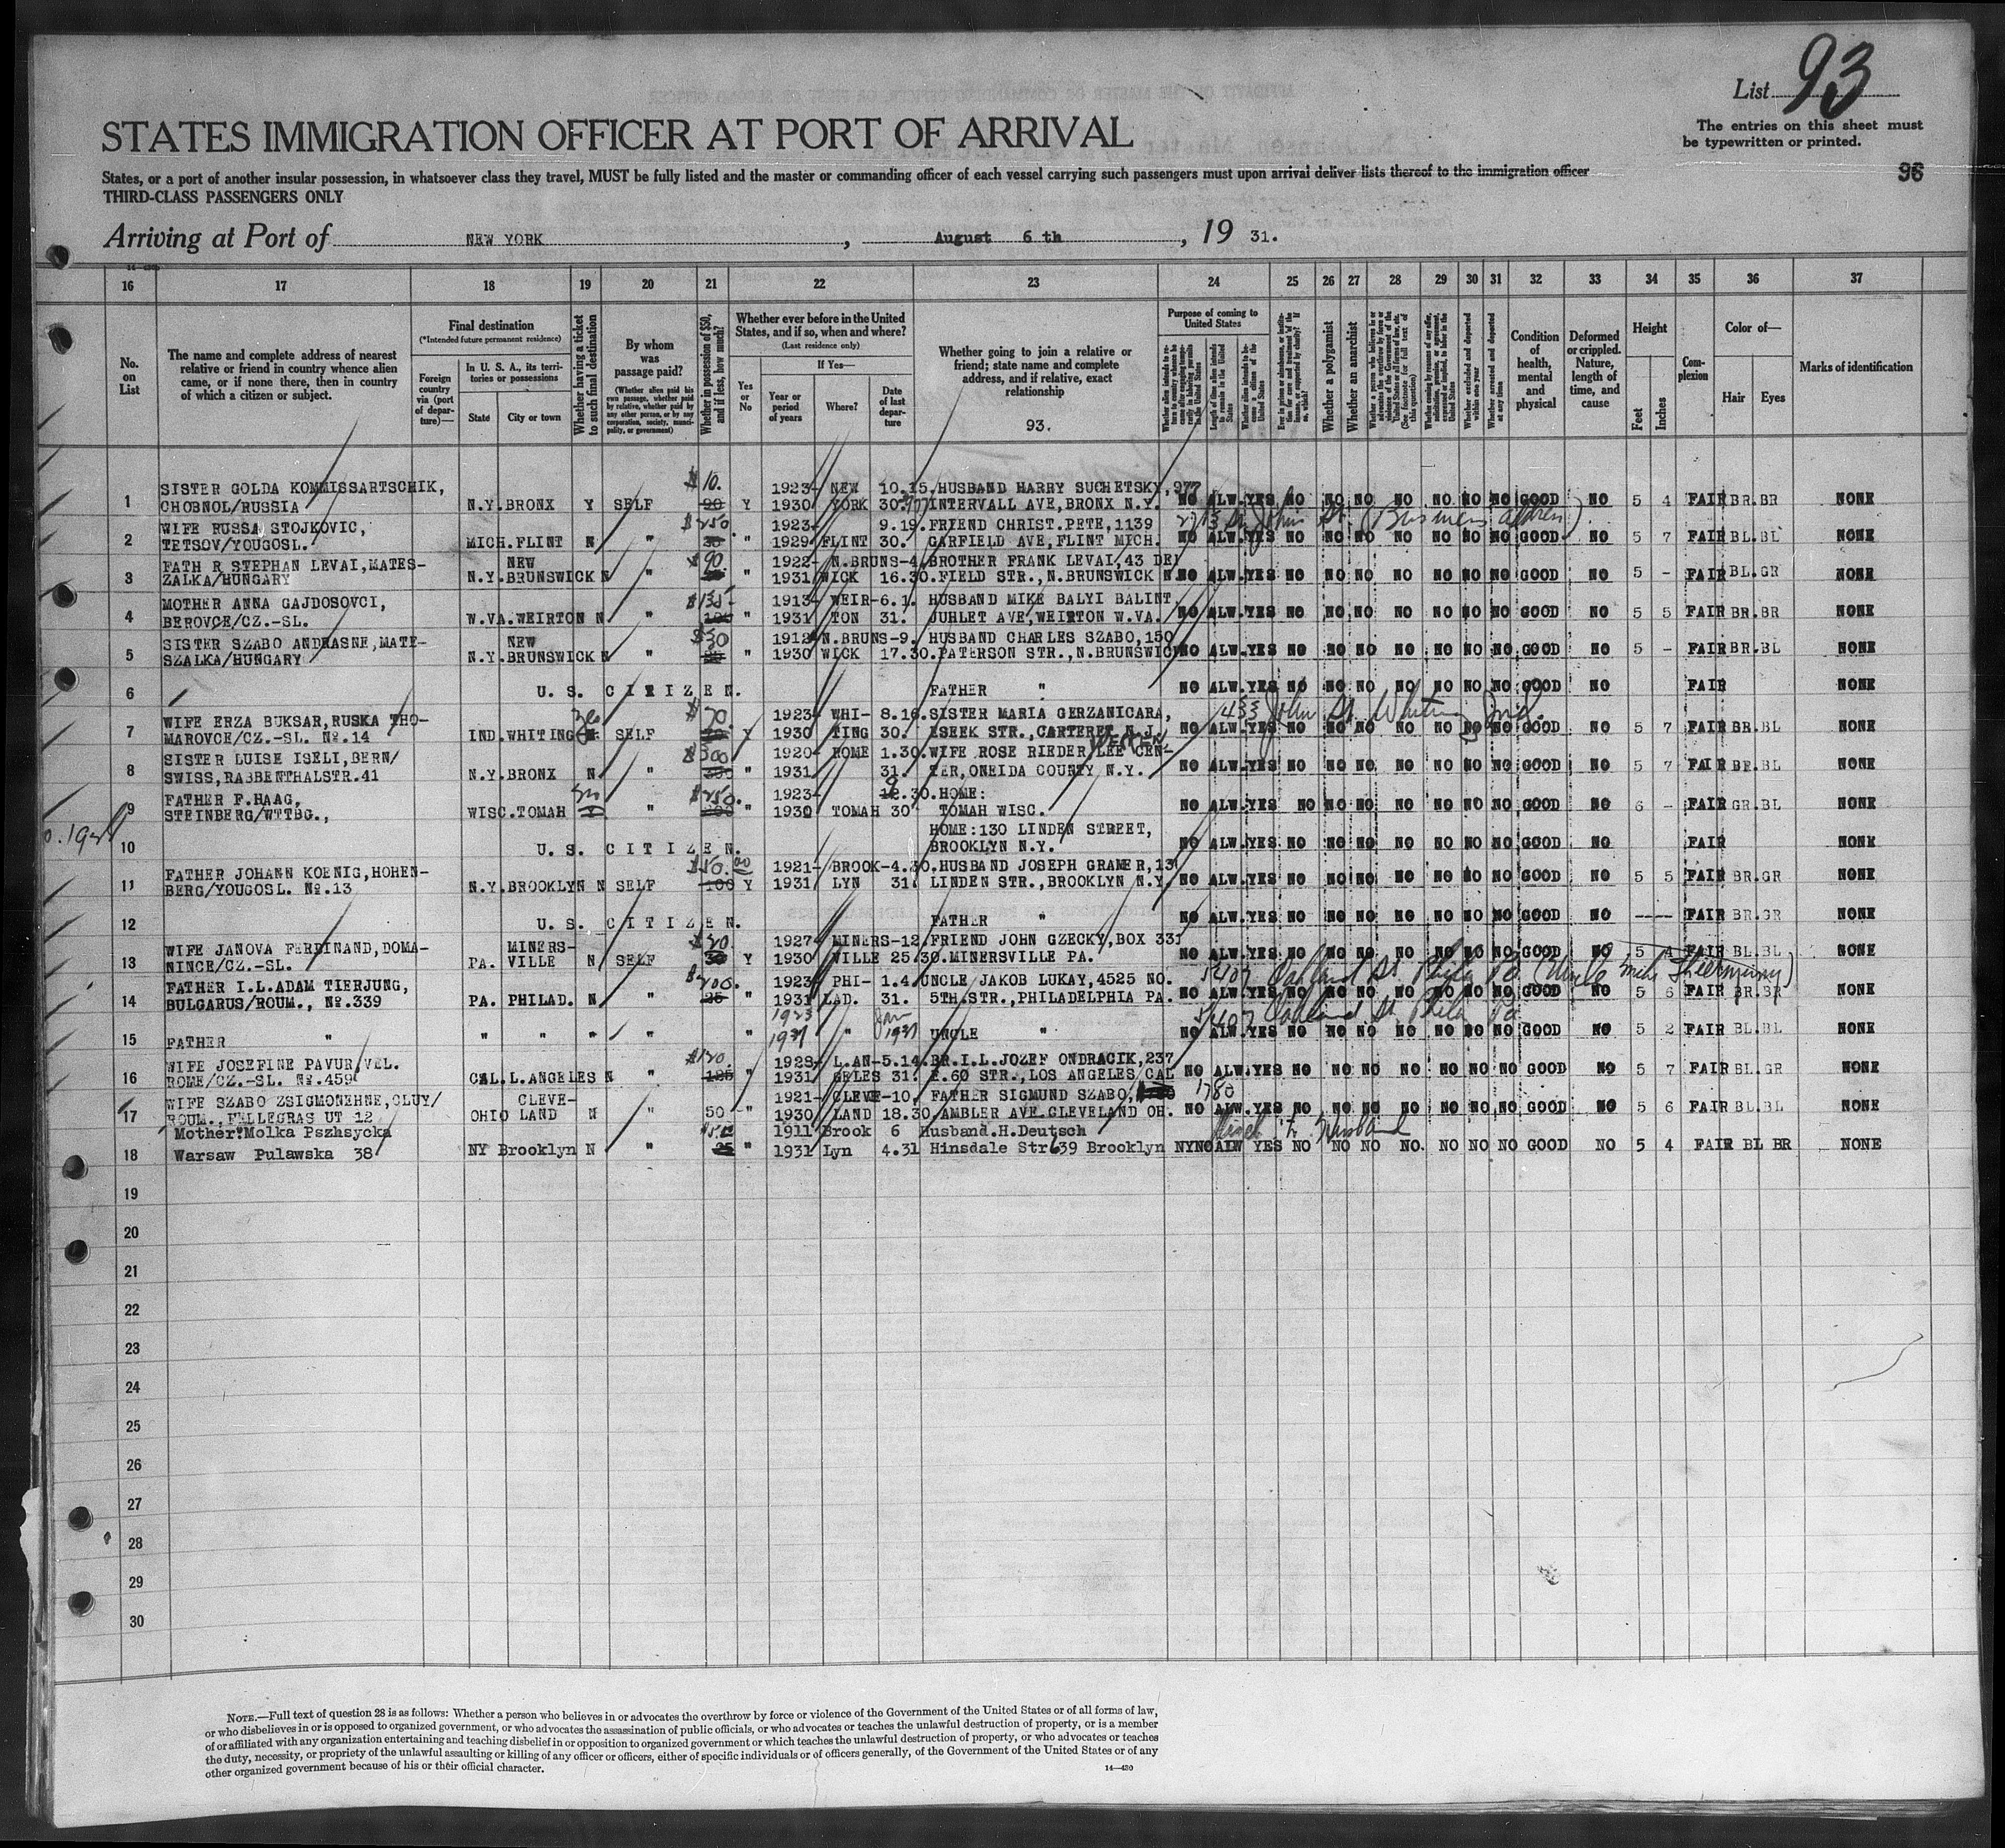 List 93
The entries on this sheet must
be typewritten or printed.
STATES IMMIGRATION OFFICER AT PORT OF ARRIVAL
States, or a port of another insular possession, in whatsoever class they travel, MUST be fully listed and the master or commanding officer of each vessel carrying such passengers must upon arrival deliver lists thereof to the immigration officer
96
THIRD-CLASS PASSENGERS ONLY
Arriving at Port of NEW YORK, August 6 th, 19 31.
16 17 18 19 20 21 22 23 24 25 26 27 28 29 30 31 32 33 34 35 36 37
No. on List
The name and complete address of nearest relative or friend in country whence alien came, or if none there, then in country of which a citizen or subject.
Final destination
(*Intended future permanent residence)
Foreign country via (port of departure)—
In U. S. A., its territories or possessions
State City or town
Whether having a ticket to such final destination
By whom was passage paid?
(Whether alien paid his own passage, whether paid by relative, whether paid by any other person, or by any corporation, society, municipality, or government)
Whether in possession of $50, and if less, how much?
Whether ever before in the United States, and if so, when and where?
(Last residence only)
Yes or No
If Yes—
Year or period of years Where? Date of last departure
Whether going to join a relative or friend; state name and complete address, and if relative, exact relationship
93.
Purpose of coming to United States
Whether a polygamist
Whether an anarchist
Condition of health, mental and physical
Deformed or crippled. Nature, length of time, and cause
Height
Feet Inches
Complexion
Color of—
Hair Eyes
Marks of identification
$10.
SISTER GOLDA KOMMISSARTSCHIK, 1923- NEW 10.15. HUSBAND HARRY SUCHETSKY, 977
1 CHOBNOL/RUSSIA N.Y. BRONX Y SELF Y 1930 YORK 30. INTERVALL AVE, BRONX N.Y. NO ALW. YES NO NO NO NO NO NO NO GOOD NO 5 4 FAIR BR. BR NONE
WIFE RUSSA STOJKOVIC, $250 1923- 9.19. FRIEND CHRIST. PETE, 1139 (Business address)
2 TETSOV/YOUGOSL. MICH. FLINT N " " 1929 FLINT 30. GARFIELD AVE, FLINT MICH. NO ALW. YES NO NO NO NO NO NO NO GOOD NO 5 7 FAIR BL. BL NONE
FATH R STEPHAN LEVAI, MATES- NEW $90 1922- N. BRUNS-4. BROTHER FRANK LEVAI, 43 DE
3 ZALKA/HUNGARY N.Y. BRUNSWICK N " " 1931 WICK 16.30. FIELD STR., N. BRUNSWICK N. NO ALW. YES NO NO NO NO NO NO NO GOOD NO 5 - FAIR BL. GR NONE
MOTHER ANNA GAJDOSOVCI, $135- 1913- WEIR-6.1. HUSBAND MIKE BALYI BALINT,
4 BEROVCE/CZ.-SL. W.VA. WEIRTON N " " 1931 TON 31. JUHLET AVE, WEIRTON W.VA. NO ALW. YES NO NO NO NO NO NO NO GOOD NO 5 5 FAIR BR. BR NONE
SISTER SZABO ANDRASNE, MATE- NEW $30 1912- N. BRUNS-9. HUSBAND CHARLES SZABO, 150
5 SZALKA/HUNGARY N.Y. BRUNSWICK N " " 1930 WICK 17.30. PATERSON STR., N. BRUNSWICK NO ALW. YES NO NO NO NO NO NO NO GOOD NO 5 - FAIR BR. BL NONE
6 U. S. CITIZEN. FATHER " NO ALW. YES NO NO NO NO NO NO NO GOOD NO FAIR NONE
WIFE ERZA BUKSAR, RUSKA THO- $70. 1923- WHI- 8.16. SISTER MARIA GERZANICARA, 1433 John St. Whiting Ind.
7 MAROVCE/CZ.-SL. No. 14 IND. WHITING SELF Y 1930 TING 30. ESEEK STR., CARTERET N.J. NO ALW. YES NO NO NO NO NO NO NO GOOD NO 5 7 FAIR BR. BL NONE
SISTER LUISE ISELI, BERN/ $300 1920- HOME 1.30. WIFE ROSE RIEDER, LEE CEN- WESTERN
8 SWISS, RABBENTHALSTR. 41 N.Y. BRONX N " " 1931 31. TER, ONEIDA COUNTY N.Y. NO ALW. YES NO NO NO NO NO NO NO GOOD NO 5 7 FAIR BR. BL NONE
FATHER F. HAAG, $250. 1923- .30. HOME:
9 STEINBERG/WTTBG., WISC. TOMAH " " 1930 TOMAH 30 TOMAH WISC. NO ALW. YES NO NO NO NO NO NO NO GOOD NO 6 - FAIR GR. BL NONE
HOME: 130 LINDEN STREET,
10 U. S. CITIZEN. BROOKLYN N.Y. NO ALW. YES NO NO NO NO NO NO NO GOOD NO FAIR NONE
FATHER JOHANN KOENIG, HOHEN- $50.00 1921- BROOK-4.30. HUSBAND JOSEPH GRAMER, 13
11 BERG/YOUGOSL. No. 13 N.Y. BROOKLYN N SELF 100 Y 1931 LYN 31. LINDEN STR., BROOKLYN N.Y. NO ALW. YES NO NO NO NO NO NO NO GOOD NO 5 5 FAIR BR. GR NONE
12 U. S. CITIZEN. FATHER " NO ALW. YES NO NO NO NO NO NO NO GOOD NO ---- FAIR BR. GR NONE
WIFE JANOVA FERDINAND, DOMA- MINERS- $20. 1927- MINERS-12. FRIEND JOHN GZECKY, BOX 331
13 NINCE/CZ.-SL. PA. VILLE N SELF 30 Y 1930 VILLE 25.30. MINERSVILLE PA. NO ALW. YES NO NO NO NO NO NO NO GOOD NO 5 4 FAIR BL. BL. NONE
FATHER I.L. ADAM TIERJUNG, $200. 1923- PHI- 1.4. UNCLE JAKOB LUKAY, 4525 NO. 5407 Oakland St. Phila Pa.
14 BULGARUS/ROUM., No. 339 PA. PHILAD. N " 25 " 1931 LAD. 31. 5TH STR., PHILADELPHIA PA. NO ALW. YES NO NO NO NO NO NO NO GOOD NO 5 6 FAIR BR. BR NONE
1923 Jan 5407 Oakland St. Phila Pa.
15 FATHER " " " " " " 1931 " 1931 UNCLE " NO ALW. YES NO NO NO NO NO NO NO GOOD NO 5 2 FAIR BL. BL NONE
WIFE JOSEFINE PAVUR, VEL. $120. 1923- L.AN-5.14. BR.I.L. JOZEF ONDRACIK, 237
16 ROME/CZ.-SL. No. 459 CAL. L. ANGELES N " 125 " 1931 GELES 31. E. 60 STR., LOS ANGELES CAL NO ALW. YES NO NO NO NO NO NO NO GOOD NO 5 7 FAIR BL. GR NONE
WIFE SZABO ZSIGMONEHNE, CLUY/ CLEVE- 1921- CLEVE-10. FATHER SIGMUND SZABO, 1780
17 ROUM., FELLEGRAS UT 12 OHIO LAND N " 50- " 1930 LAND 18.30. AMBLER AVE. CLEVELAND OH. NO ALW. YES NO NO NO NO NO NO NO GOOD NO 5 6 FAIR BL. BL NONE
Mother: Molka Pszhsycka 1911 Brook 6 Husband. H. Deutsch
18 Warsaw Pulawska 38 NY Brooklyn N " 25 " 1931 Lyn 4.31 Hinsdale Str 639 Brooklyn NY NO ALW YES NO NO NO NO. NO NO NO GOOD NO 5 4 FAIR BL BR NONE
19
20
21
22
23
24
25
26
27
28
29
30
NOTE.—Full text of question 28 is as follows: Whether a person who believes in or advocates the overthrow by force or violence of the Government of the United States or of all forms of law,
or who disbelieves in or is opposed to organized government, or who advocates the assassination of public officials, or who advocates or teaches the unlawful destruction of property, or is a member
of or affiliated with any organization entertaining and teaching disbelief in or opposition to organized government or which teaches the unlawful destruction of property, or who advocates or teaches
the duty, necessity, or propriety of the unlawful assaulting or killing of any officer or officers, either of specific individuals or of officers generally, of the Government of the United States or of any
other organized government because of his or their official character.
14—430